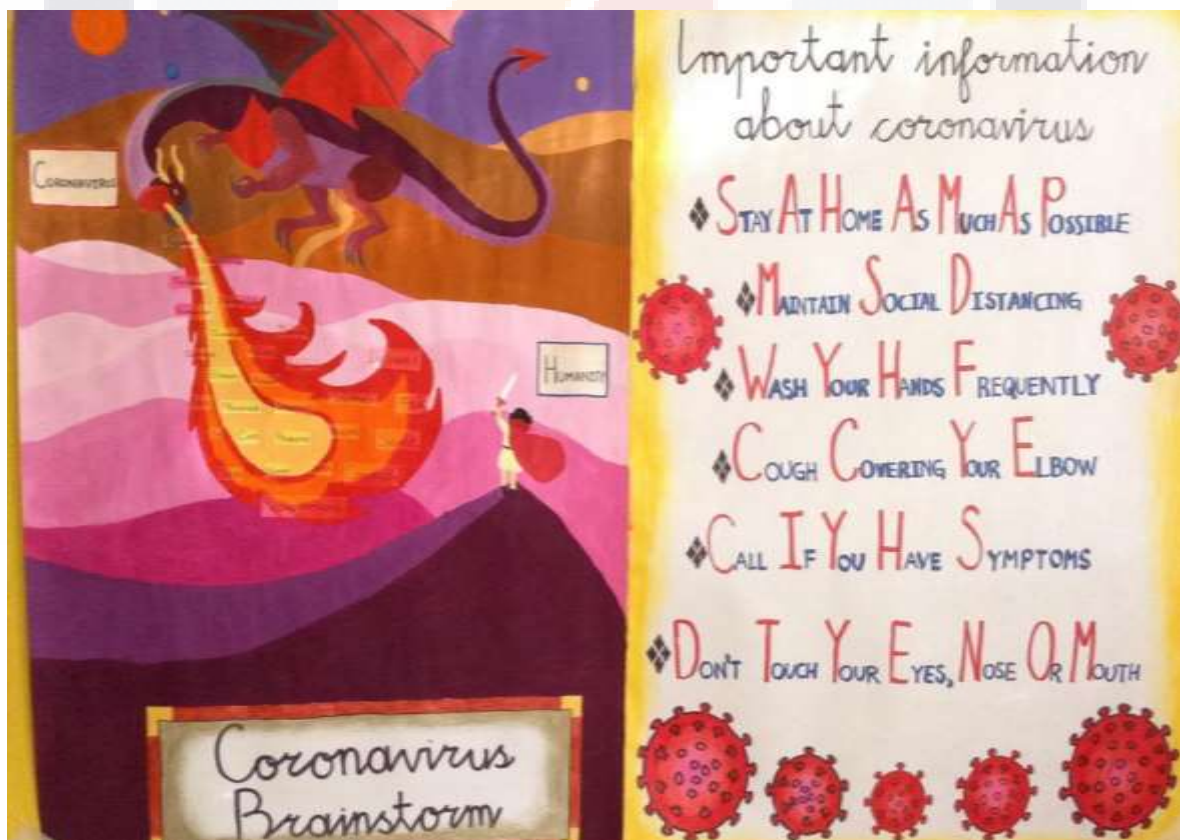 Coronavirus
Humanity
Coronavirus
Brainstorm
Important information
about coronavirus
Stay At Home As Much As Possible
Maintain Social Distancing
Wash Your Hands Frequently
Cough Covering Your Elbow
Call If You Have Symptoms
Don't Touch Your Eyes, Nose Or Mouth